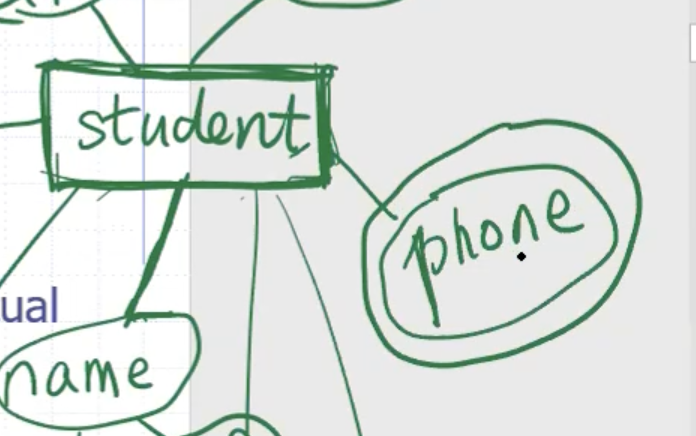 student
phone
ual
name